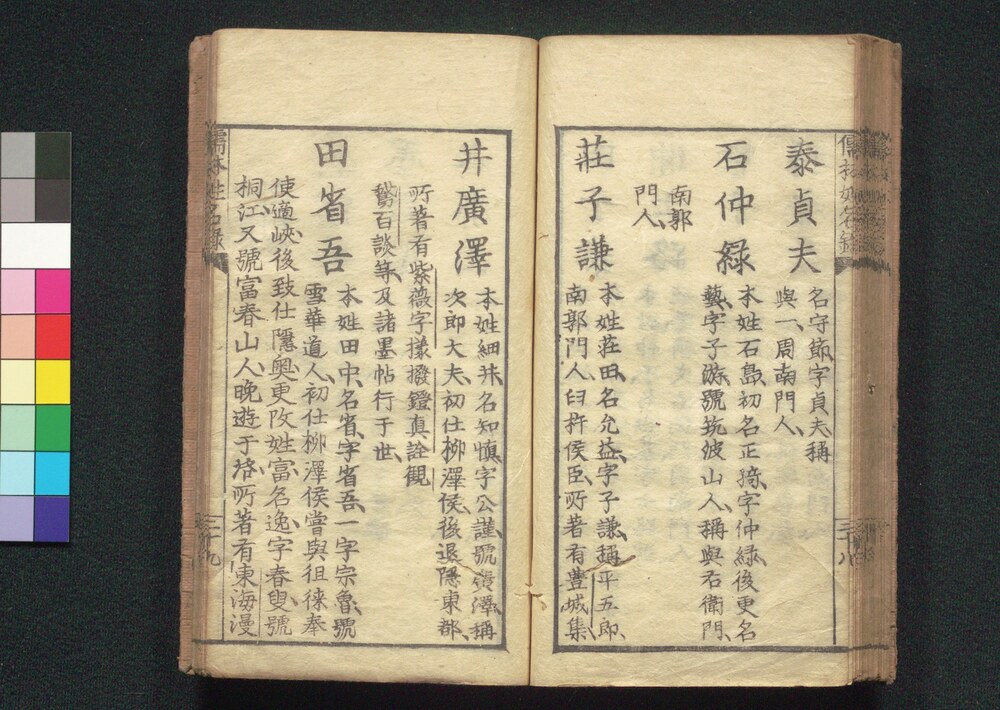 儒林姓名録
泰貞夫
名守節字貞夫稱
與一周南門人
石仲緑
本姓石島初名正猗字仲緑後更名
藝字子游號筑波山人稱與右衛門
南郭
門人
莊子謙
本姓莊田名允益字子謙稱平五郎
南郭門人臼杵侯臣所著有豊城集
三十八
井廣澤
本姓細井名知慎字公謹號廣澤稱
次郎大夫初仕柳澤侯後退隱東都
所著有紫薇字様撥鐙真詮觀
鵞百談等及諸墨帖行于世
田省吾
本姓田中名省字省吾一字宗魯號
雪華道人初仕柳澤侯嘗與徂徠奉
使適峽後致仕隱奥更改姓富名逸字春叟號
桐江又號富春山人晩遊于
所著有東海漫
儒林姓名録
三十九